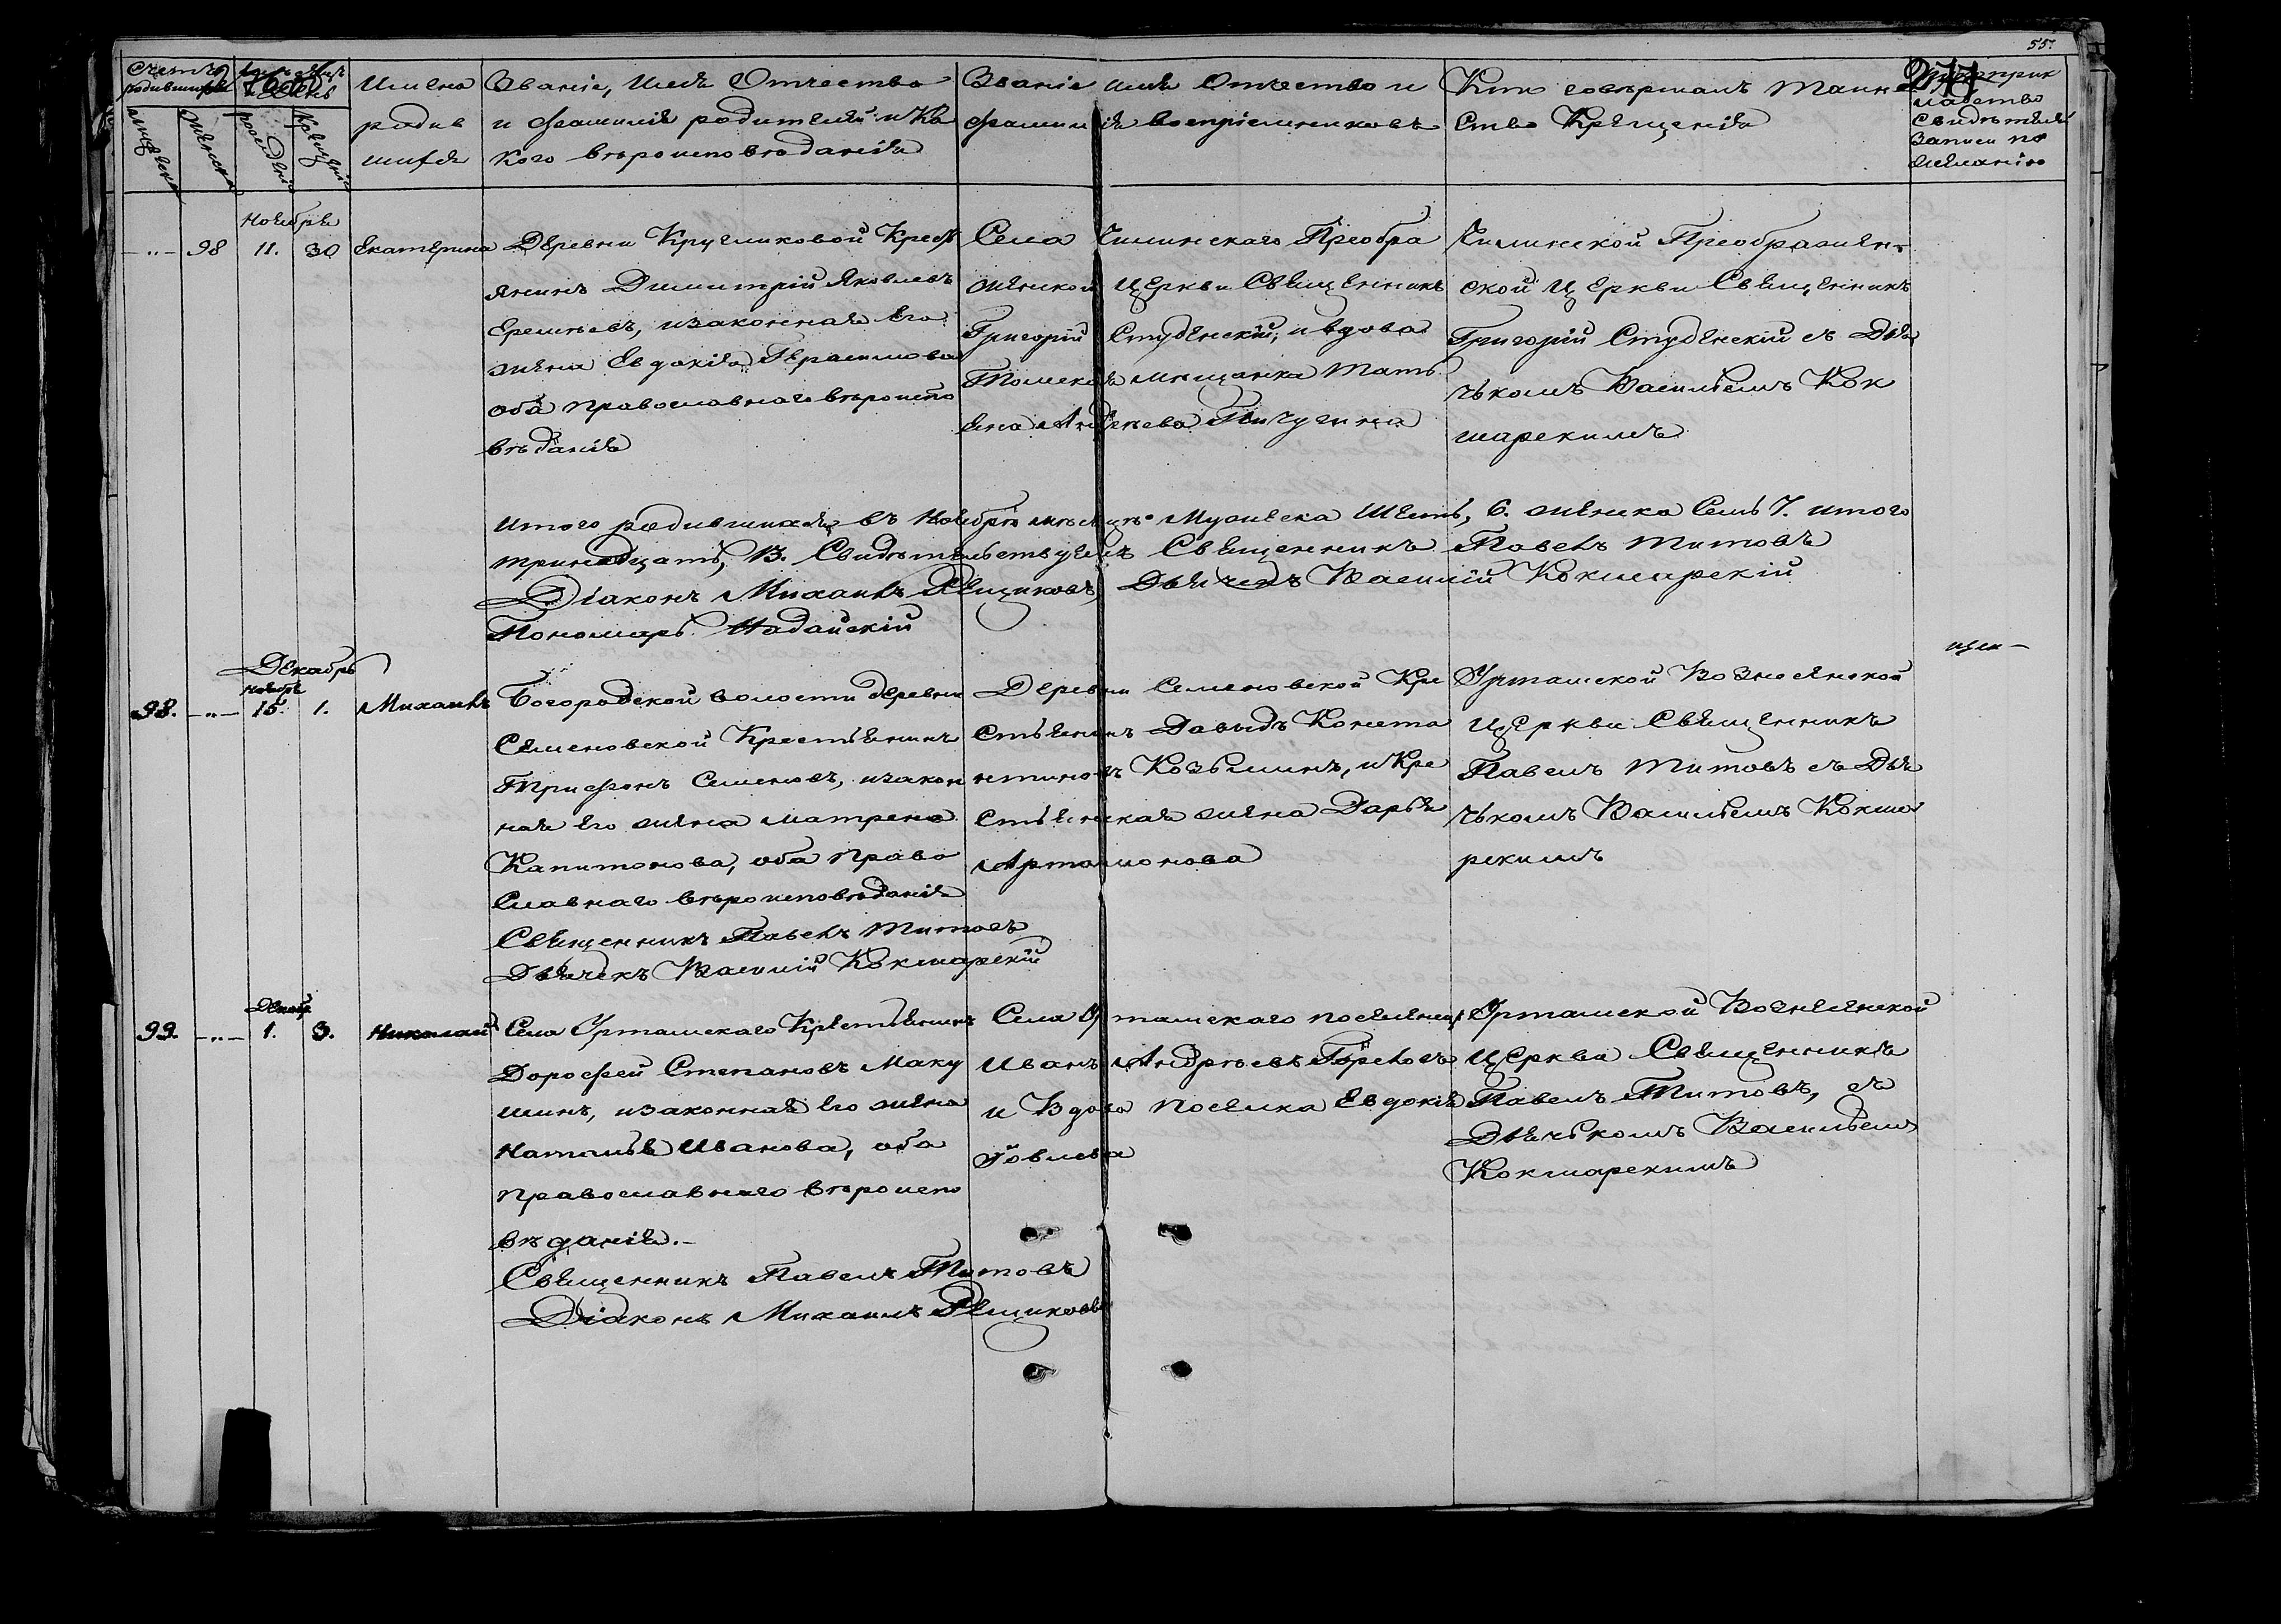 55.
277
Счетъ родившихся
Мѣсяцъ и день
мужеска
женска
рожденія
крещенія
Имена
родив
шихся
Званіе, имя Отчество
и фамилія родителей и ка
кого вѣроисповѣданія
Званіе имя Отчество и
фамилія воспріемниковъ
Кто совершалъ таин
ство Крещенія
свидѣтелей
записи по
желанію
Ноября
98 11. 30 Екатерина
Деревни Кругликовой Кресть
янинъ Димитрій Яковлевъ
Еремѣевъ, изаконная Его
жена Евдокія Герасимова
оба православнаго вѣроиспо
вѣданія
Села Чилинскаго Преобра
женской Церкви Священникъ
Григорій Студенскій, и вдова
Томская мѣщанка Тать
яна Андреева Пичугина
Чилинской Преображен
ской Церкви Священникъ
Григорій Студенскій съ Дья
чькомъ Васильемъ Кок
шарскимъ
Итого родившихся въ Ноябрѣ мѣсяцѣ Мужеска Шесть, 6. женска Семь 7. итого
тринадцать, 13. Свидѣтельствуемъ Священникъ Павелъ Титовъ
Діаконъ Михаилъ Рещиковъ, Дьячекъ Василій Кокшарскій
Пономарь Надайскій
Декабрь
Ноябрь
98. 15. 1. Михаилъ
Богородской волости деревни
Семеновской Крестьянинъ
Трифонъ Семеновъ, изакон
ная Его жена Матрена
Капитонова, оба Право
славнаго вѣроисповѣданія
Священникъ Павелъ Титовъ
Дьячекъ Василій Кокшарскій
Деревни Семеновской Кре
стьянинъ Давыдъ Конста
нтиновъ Козьминъ, и Кре
стьянская жена Дарья
Артамонова
Уртамской Вознесенской
Церкви Священникъ
Павелъ Титовъ съ Дья
чькомъ Васильемъ Кокша
рскимъ
Декабр
99. 1. 3. Николай
Села Уртамскаго Крестьянинъ
Дорофей Степановъ Маку
шинъ, изаконная Его жена
Наталья Иванова, оба
православнаго вѣроиспо
вѣданія.
Священникъ Павелъ Титовъ
Діаконъ Михаилъ Рещиковъ
Села Уртамскаго поселенецъ
Иванъ Андрѣевъ Горѣловъ
и Вдова поселка Евдокія
Іовлева
Уртамской Вознесенской
Церкви Священникъ
Павелъ Титовъ, съ
Дьячькомъ Васильемъ
Кокшарскимъ